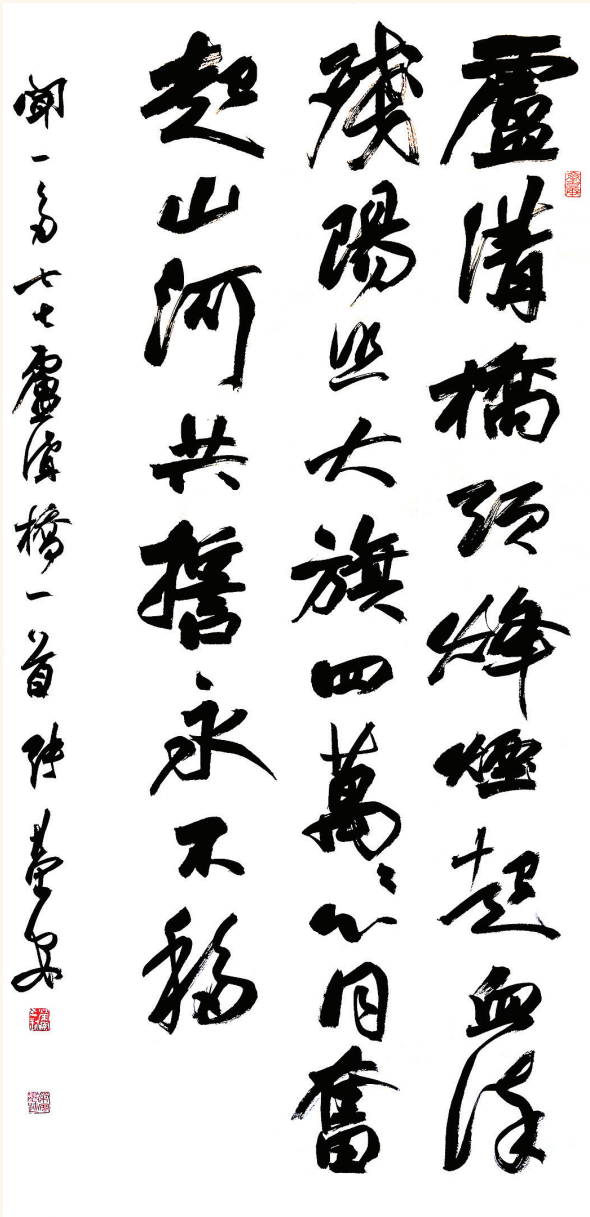 盧溝橋頭烽煙起血染
殘陽照大旗四萬萬心同奮
起山河共誓永不移
聞一多七七盧溝橋一首